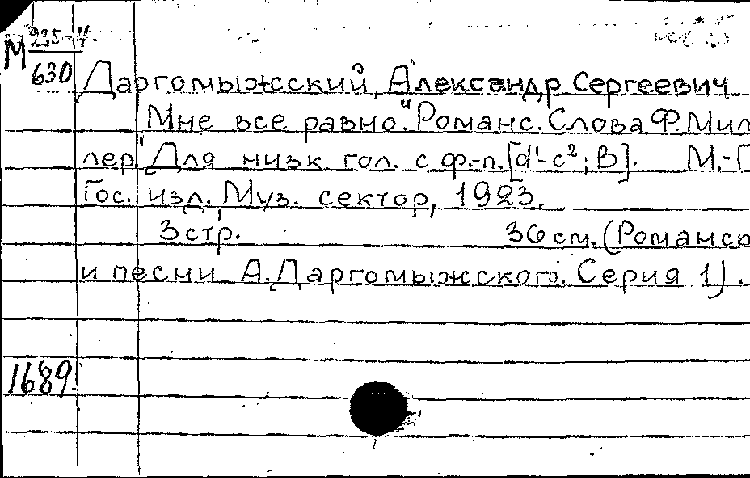 М 235-4
630
Даргомыжский, Александр Сергеевич
"Мне все равно". Романс. Слова Ф. Мил
лер. Для низк. гол. с ф.-п. [d¹-c²; B]. М.-
Гос. изд. Муз. сектор, 1923.
3 стр. 36 см. (Романсы
и песни А. Даргомыжского. Серия 1).
1689